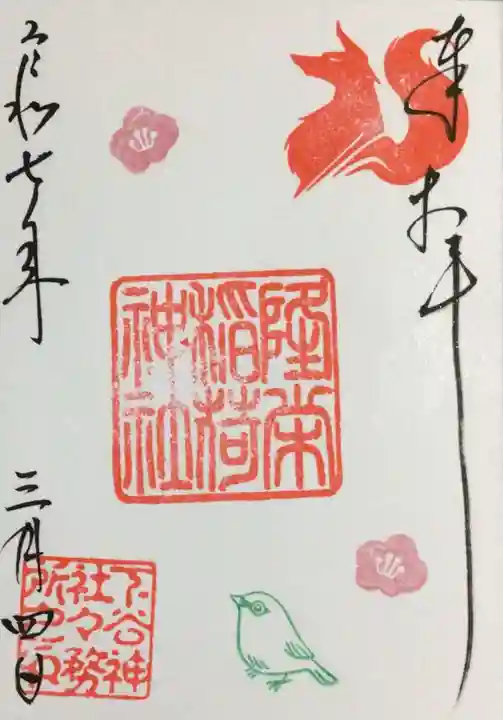 奉拝
隆栄
稲荷
神社
令和七年
三月四日
下谷神
社々務
所之印